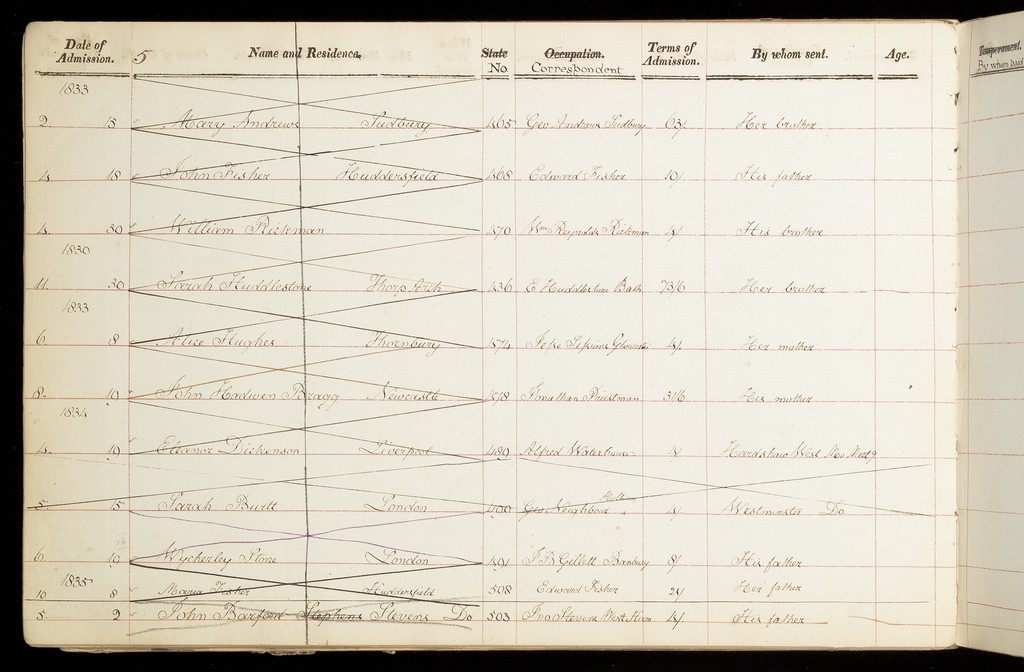 Date of Admission. 5 Name and Residence. State No. Occupation. Correspondent Terms of Admission. By whom sent. Age.
1833
2 15 Mary Andrews Sudbury 465 Geo Andrews Sudbury 63/ Her brother
4 18 John Fisher Huddersfield 468 Edward Fisher 10/ His father
4 30 William Rickman 470 Wm Reynolds Rickman 4/ His brother
1830
11 30 Sarah Huddlestone Thorp Arch 436 E Huddlestone Bath 73/6 Her brother
1833
6 8 Alice Hughes Thornbury 474 Jesse Sessions 4/ Her mother
8 19 John Hadwen Bragg Newcastle 478 Jonathan Priestman 31/6 His mother
1834
4 19 Eleanor Dickenson Liverpool 489 Alfred Waterhouse Hardshaw West Mo Meetg
5 15 Sarah Burtt London 490 Geo Neighbour Holborn 4/ Westminster Do
6 19 Wycherley Stone London 491 J B Gillett Banbury 8/ His father
1835
10 8 Maria Fisher Huddersfield 508 Edward Fisher Her father
5 2 John Barford Stephens Stevens Do 503 Jno Stevens West Ham 4/ His father
Temperament.
By whom paid